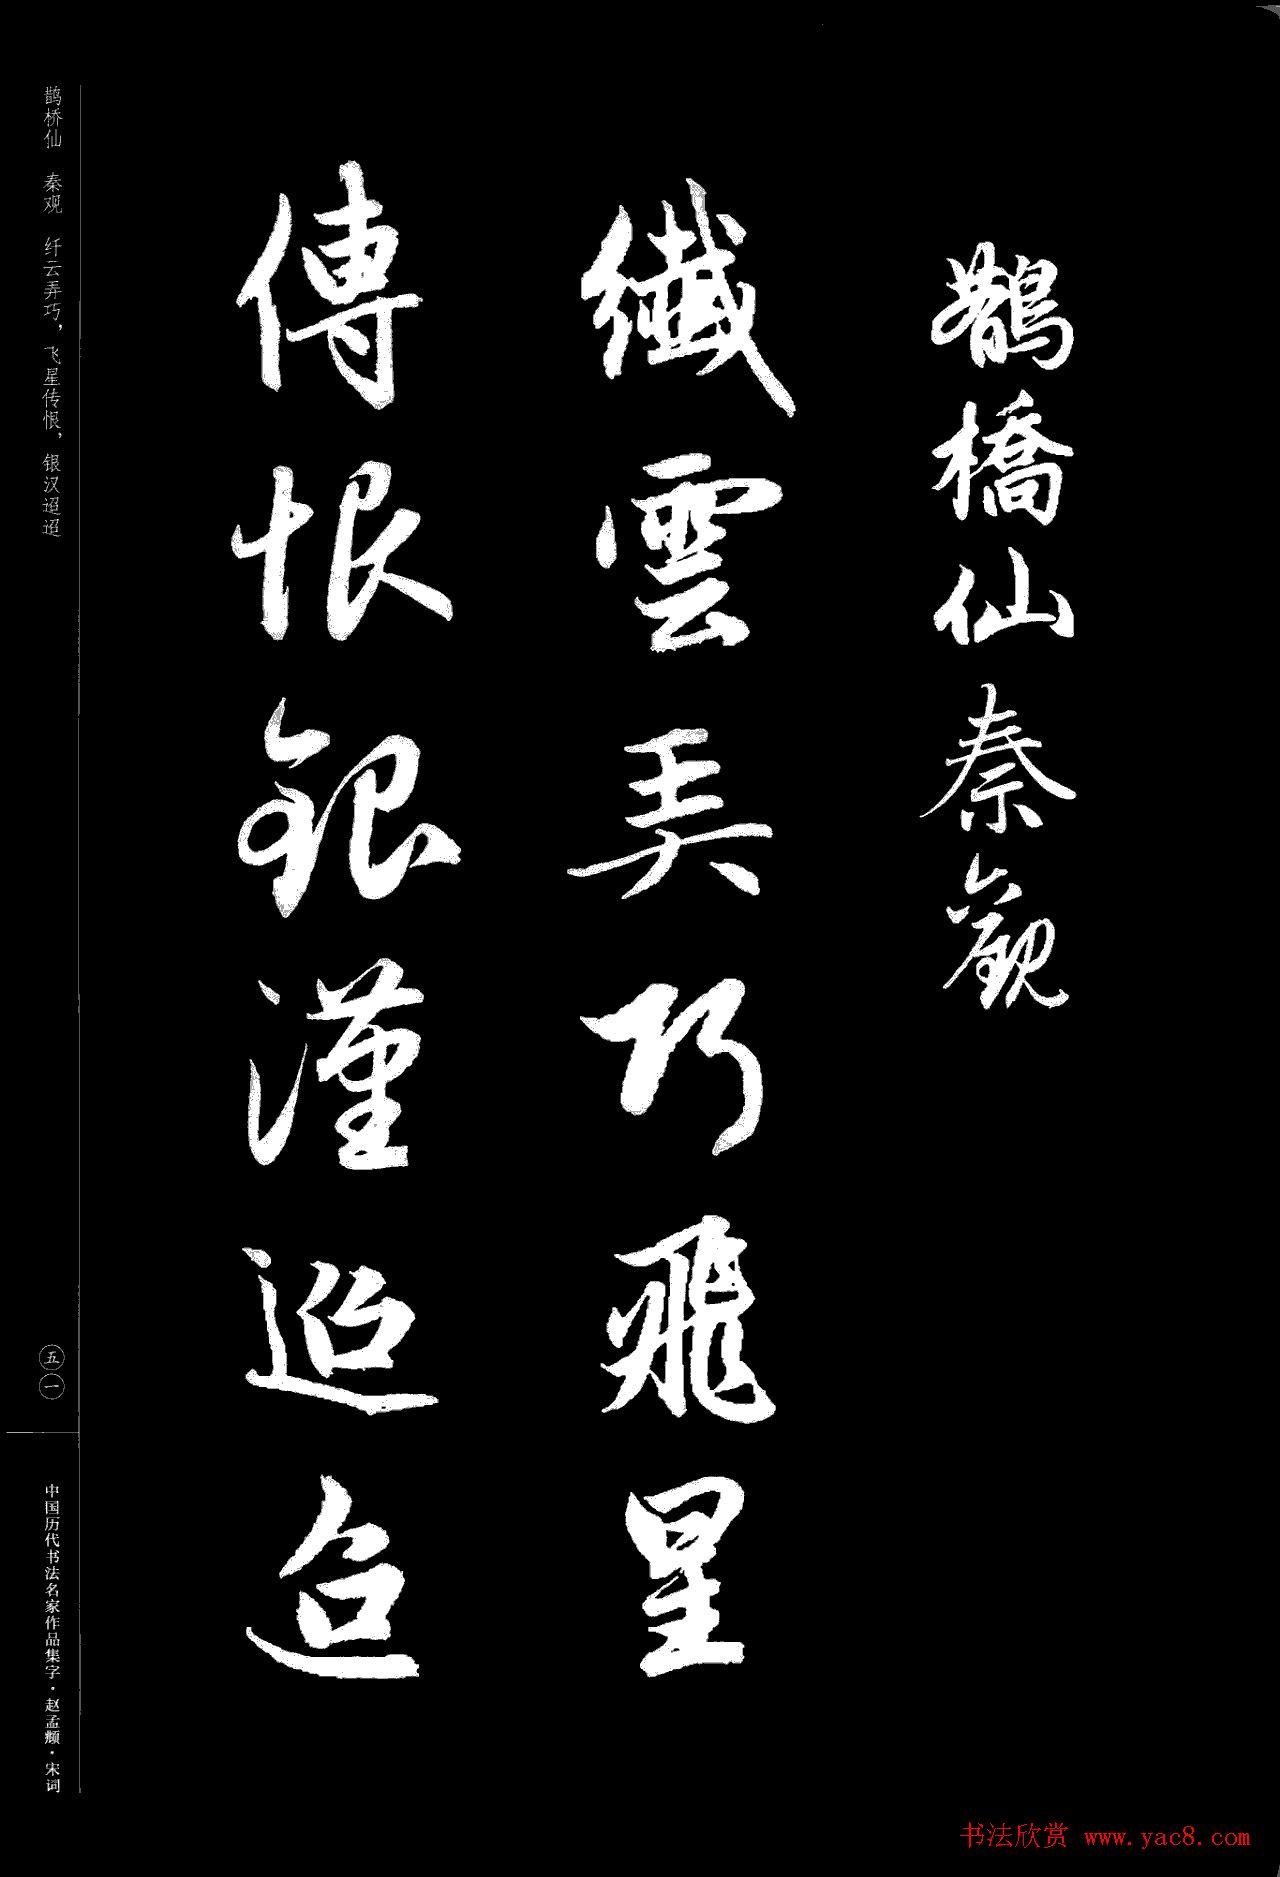 鵲橋仙秦觀
纖雲弄巧飛星
傳恨銀漢迢迢
鹊桥仙 秦观 纤云弄巧，飞星传恨，银汉迢迢
五一
中国历代书法名家作品集字·赵孟頫·宋词
书法欣赏 www.yac8.com